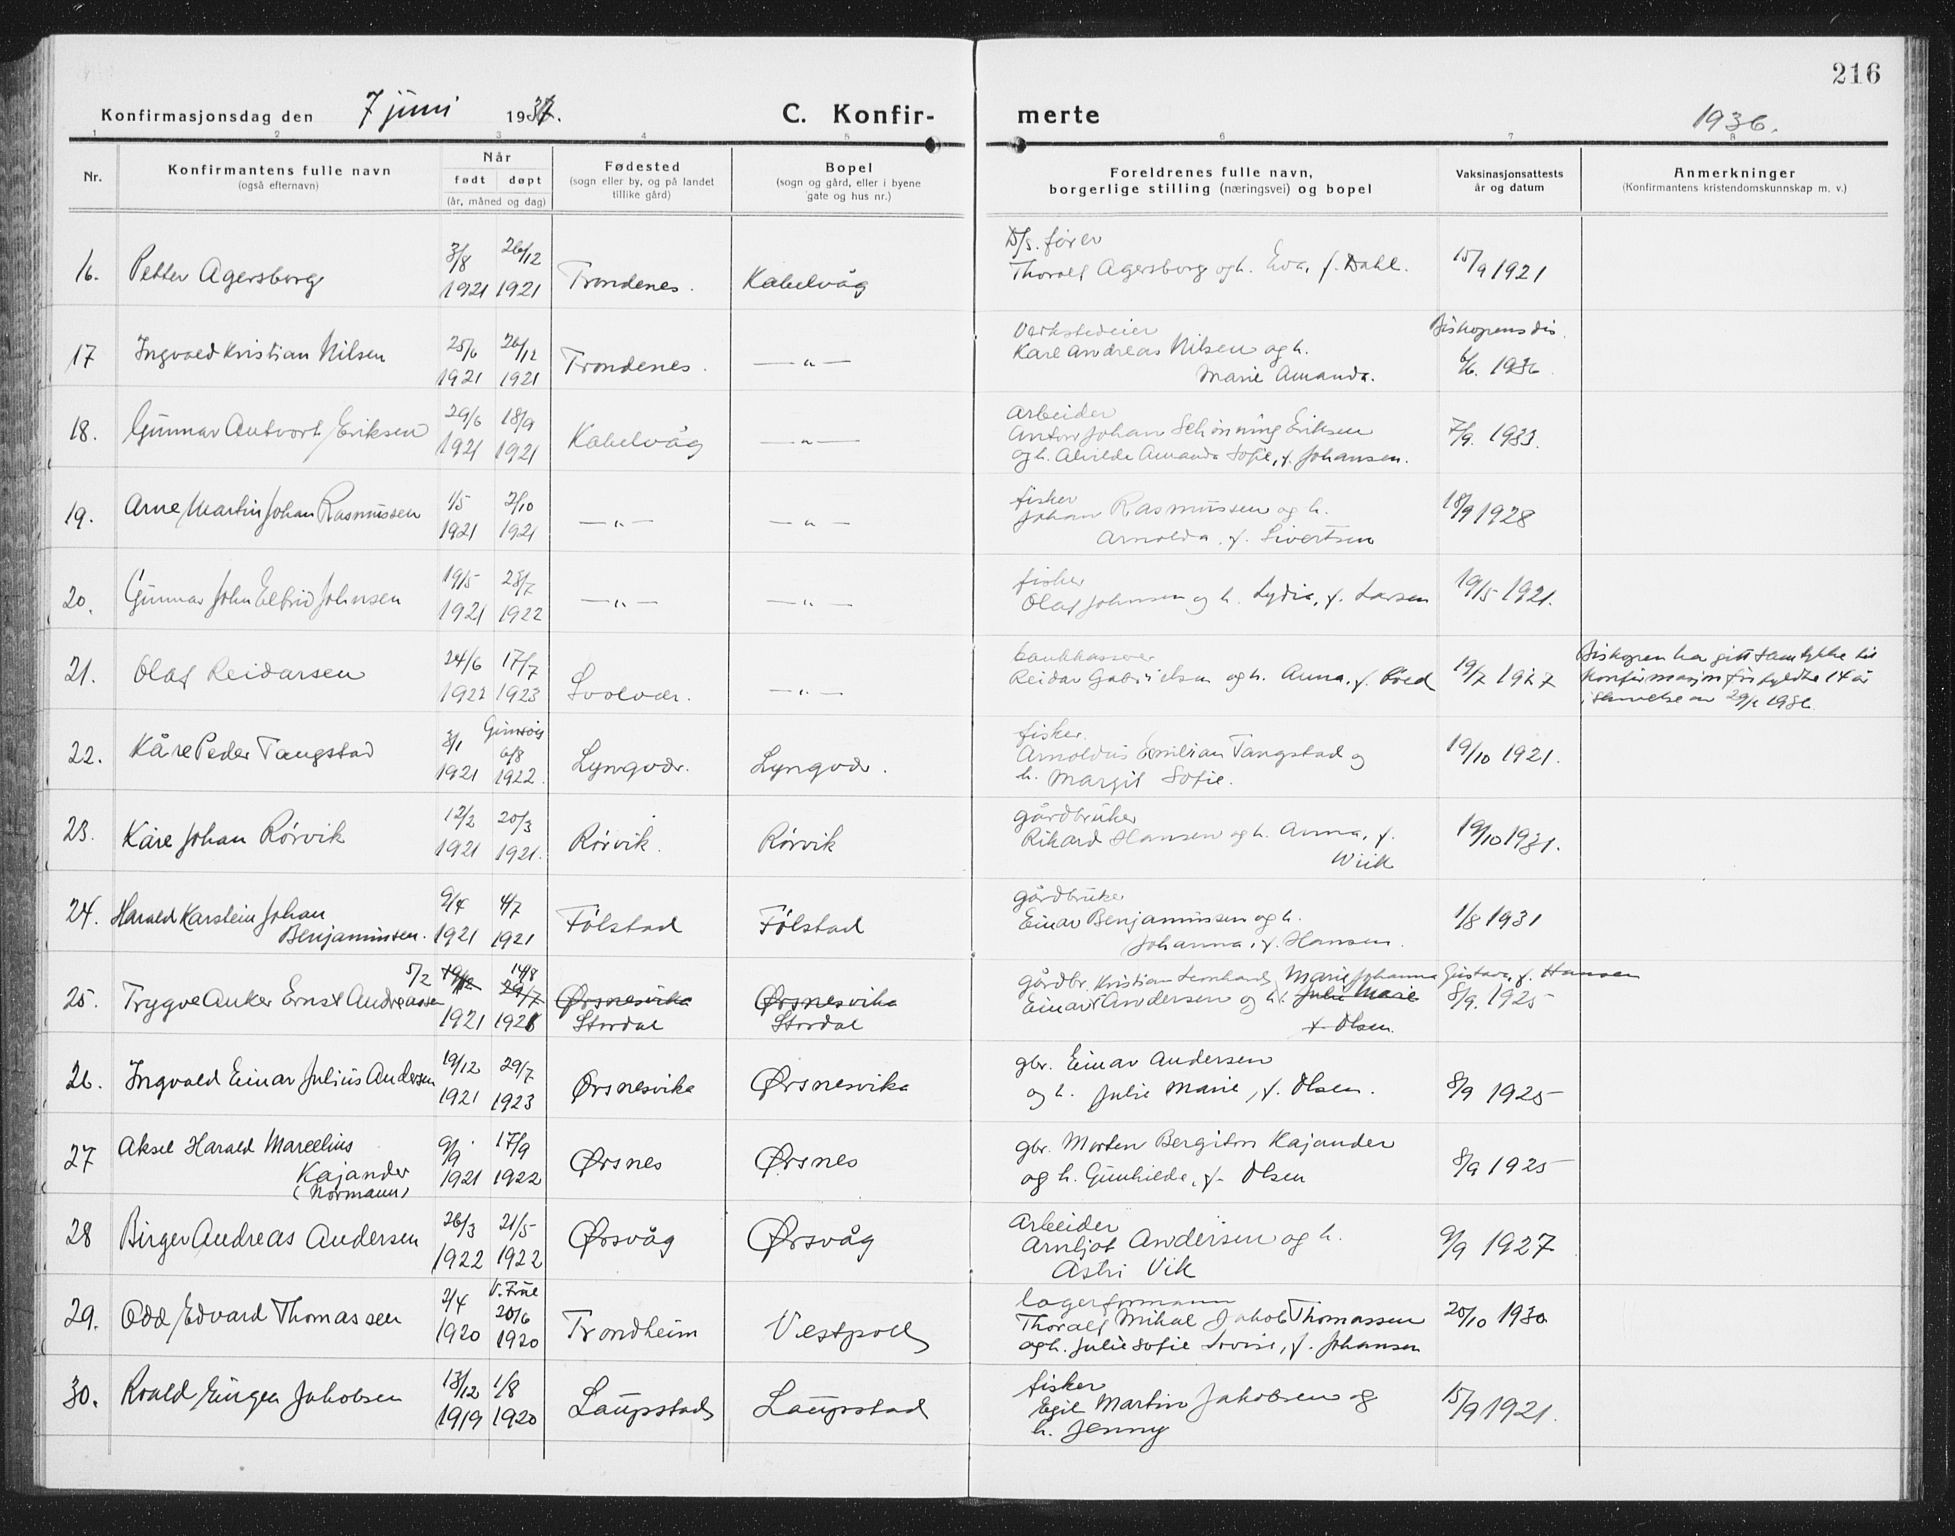 216
Konfirmasjonsdag den 7 juni 1937.
C. Konfirmerte
1936.
1 2 3 4 5 6 7 8
Nr.
Konfirmantens fulle navn
(også efternavn)
Når
født døpt
(år, måned og dag)
Fødested
(sogn eller by, og på landet
tillike gård)
Bopel
(sogn og gård, eller i byene
gate og hus nr.)
Foreldrenes fulle navn,
borgerlige stilling (næringsvei) og bopel
Vaksinasjonsattests
år og datum
Anmerkninger
(Konfirmantens kristendomskunnskap m. v.)
D/s. fører
16. Petter Agersborg 3/8 1921 26/12 1921 Trondenes. Kabelvåg Thoralf Agersborg og h. Eva, f. Dahl. 15/9 1921
Verkstedeier
17 Ingvald Kristian Nilsen 25/6 1921 26/12 1921 Trondenes. —"— Kare Andreas Nilsen og h.
Marie Amanda. Biskopens dis. 6/6. 1936
Arbeider
18. Gunnar Antvort Eriksen 29/6 1921 18/9 1921 Kabelvåg —"— Anton Johan Schönning Eriksen
og h. Alvilde Amanda Sofie, f. Johansen. 7/9. 1933.
fisker
19. Arne Martin Johan Rasmussen 1/5 1921 2/10 1921 —"— —"— Johan Rasmussen og h.
Arnolda, f. Sivertsen 18/9 1928
fisker
20. Gunnar John Elfrid Johnsen 19/5 1921 28/7 1922 —"— —"— Olaf Johnsen og h. Lydia, f. Larsen 19/5 1921.
bankkasserer
21. Olaf Reidarsen 24/6 1922 17/7 1923 Svolvær. —"— Reidar Gabrielsen og h. Anna, f. 19/7 1927
Biskopen har gitt samtykke til
konfirmasjon før fyldte 14 år
i skrivelse av 29/1 1936.
fisker.
22. Kåre Peder Tangstad 3/1 1921 Gimsøy 6/8 1922. Lyngvær. Lyngvær. Arnoldus Emilian Tangstad og
h. Margit Sofie. 19/10 1921.
gårdbruker
23. Kåre Johan Rørvik 12/2 1921 20/3 1921. Rørvik. Rørvik Rikard Hansen og h. Anna, f.
Wiik 19/10 1931.
gårdbruker
24. Harald Karstein Johan
Benjaminsen. 9/4 1921 4/7 1921 Følstad Følstad Einar Benjaminsen og h.
Johanna, f. Hansen. 1/8 1931
25. Trygve Anker Ernst Andreassen 5/2 19/12 1921 14/8 29/7 1921 Ørsnesvika Stordal Ørsnesvika Stordal gårdbr. Kristian Leonhard Marie Johanna Gustava, f. Hansen
Einar Andersen og h. Julie Marie
f. Olsen. 8/9. 1925
26. Ingvald Einar Julius Andersen 19/12 1921 29/7 1923 Ørsnesvika Ørsnesvika gbr. Einar Andersen
og h. Julie Marie, f. Olsen. 8/9 1925
27 Aksel Harald Marcelius
Kajander
(Normann) 9/9 1921 17/9 1922 Ørsnes Ørsnes gbr. Morten Bergiton Kajander
og h. Gunhilda, f. Olsen 8/9 1925
Arbeider
28 Birger Andreas Andersen 26/3 1922 21/5 1922 Ørsvåg Ørsvåg Arnljot Andersen og h.
Astri Vik 9/9 1927
lagerformann
29. Odd Edvard Thomassen 2/4 1920 V. Frue 20/6 1920 Trondheim Vestpoll Thoralf Mikal Jakob Thomassen
og h. Julie Sofie Lovise, f. Johansen 20/10 1930
fisker
30. Roald Eingen Jakobsen 13/12 1919 1/8 1920 Laupstad Laupstad Egil Martin Jakobsen og
h. Jenny 15/9 1921.